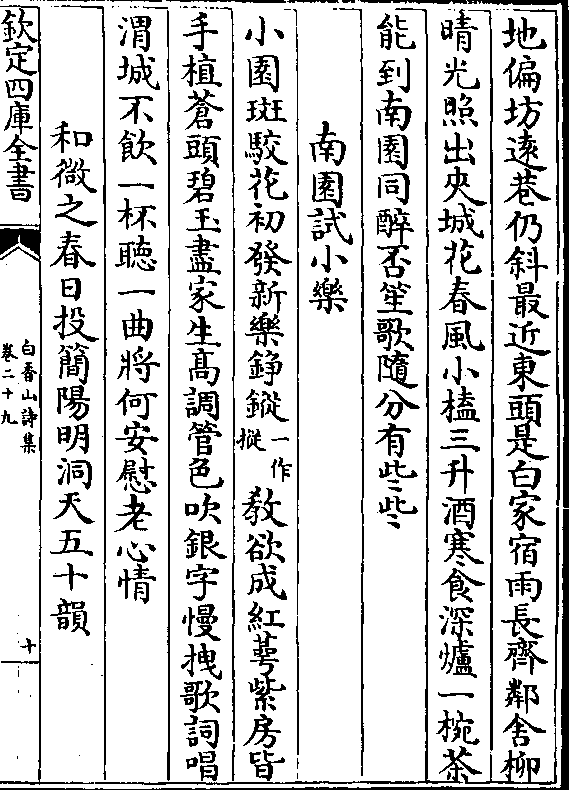 地偏坊逺巷仍斜最近東頭是白家宿雨長齊鄰舍柳
晴光照出夾城花春風小榼三升酒寒食深爐一椀茶
能到南園同醉否笙歌隨分有些些
南園試小樂
小園斑駮花初發新樂錚鏦一作摐教欲成紅萼紫房皆
手植蒼頭碧玉盡家生髙調管色吹銀字慢拽歌詞唱
渭城不飲一杯聴一曲將何安慰老心情
和微之春日投簡陽明洞天五十韻
欽定四庫全書
白香山詩集
卷二十九
十